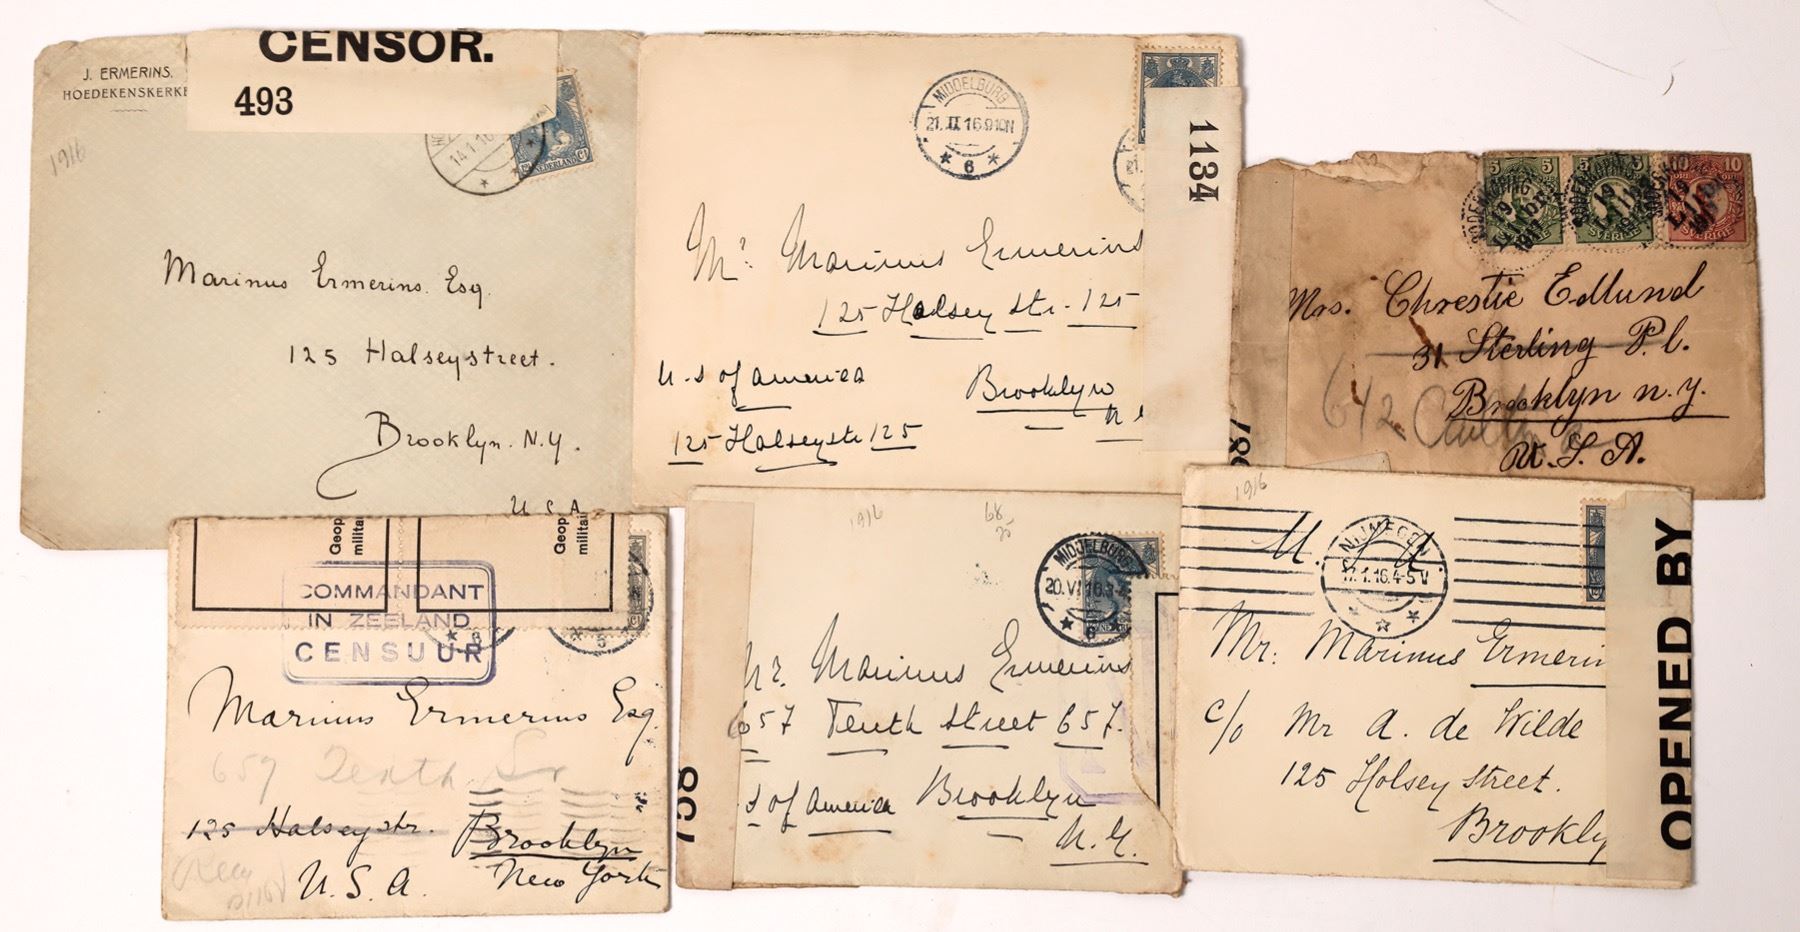 J. ERMERINS.
HOEDEKENSKERKE
CENSOR.
493
1916
14.1.16
NEDERLAND
Marinus Ermerins. Esq.
125 Halseystreet.
Brooklyn. N.Y.
U.S.A.
MIDDELBURG
21.II.16.9-10N
6
1134
Mr. Marinus Ermerins
125 Halsey Str. 125
U.S of America
Brooklyn
125 Halseystr 125
5 5 5 10 10
SÖDERKÖPING
19
SVERIGE
SVERIGE
SVERIGE
Mrs. Chrestie Edlund
31 Sterling P.l.
Brooklyn n.y.
U.S.A.
642
Geop
militai
Geop
militai
COMMANDANT
IN ZEELAND
CENSUUR
Marinus Ermerins Esq.
659 Tenth Str
125 Halseystr.
Brooklyn
U.S.A.
New York
1916
68
MIDDELBURG
20.VI.16.3-4
6
Mr. Marinus Ermerins
657 Tenth Street 657.
S of America Brooklyn
N.Y.
738
1916
NIJMEGEN
17.1.16.4-5 V
Mr. Marinus Ermerin
c/o Mr A. de Wilde
125 Holsey Street.
Brookly
OPENED BY